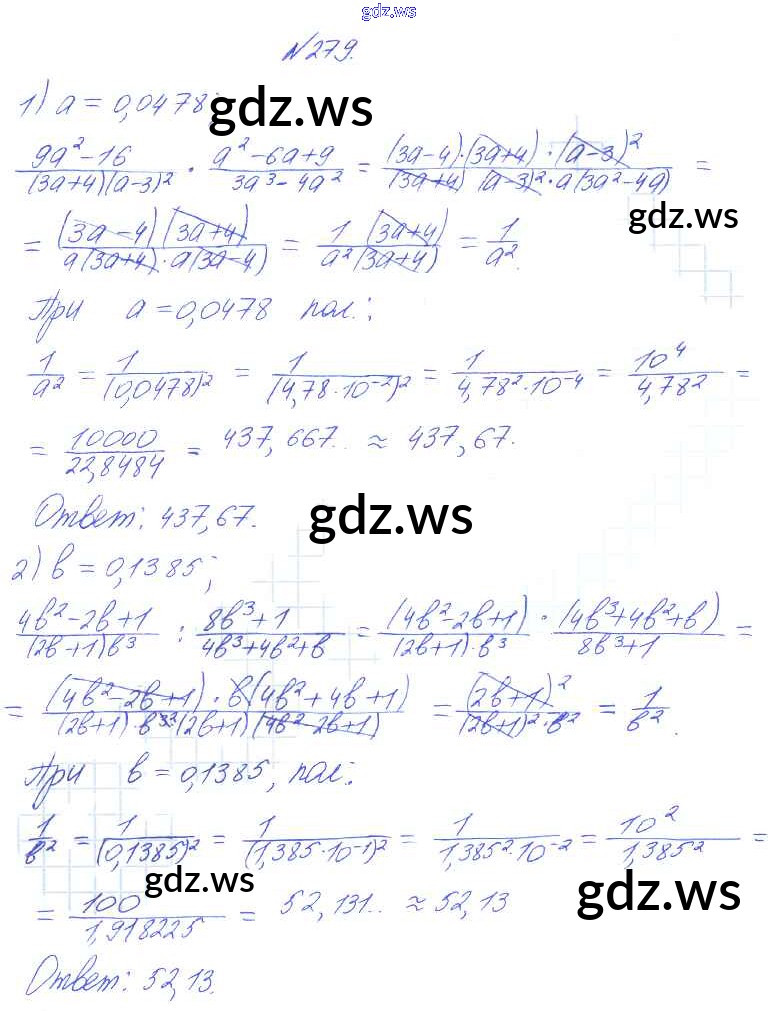 gdz.ws
№279.
1) a = 0,0478; gdz.ws
(9a² - 16)/((3a+4)(a-3)²) · (a² - 6a + 9)/(3a³ - 4a²) = ((3a-4)·(3a+4)·(a-3)²)/((3a+4)(a-3)²·a(3a²-4a)) =
gdz.ws
= ((3a-4)(3a+4))/(a(3a+4)·a(3a-4)) = (1(3a+4))/(a²(3a+4)) = 1/a².
При a = 0,0478 пол.:
1/a² = 1/(0,0478)² = 1/(4,78·10⁻²)² = 1/(4,78²·10⁻⁴) = 10⁴/4,78² =
= 10000/22,8484 = 437,667.. ≈ 437,67.
Ответ: 437,67. gdz.ws
2) в = 0,1385;
(4в² - 2в + 1)/((2в+1)в³) : (8в³ + 1)/(4в³ + 4в² + в) = (4в² - 2в + 1)/((2в+1)·в³) · (4в³ + 4в² + в)/(8в³ + 1) =
= ((4в² - 2в + 1)·в(4в² + 4в + 1))/((2в+1)·в³²(2в+1)(4в² - 2в + 1)) = (2в+1)²/((2в+1)²·в²) = 1/в².
При в = 0,1385, пол:
1/в² = 1/(0,1385)² = 1/(1,385·10⁻¹)² = 1/(1,385²·10⁻²) = 10²/1,385² =
gdz.ws gdz.ws
= 100/1,918225 = 52,131.. ≈ 52,13
Ответ: 52,13.